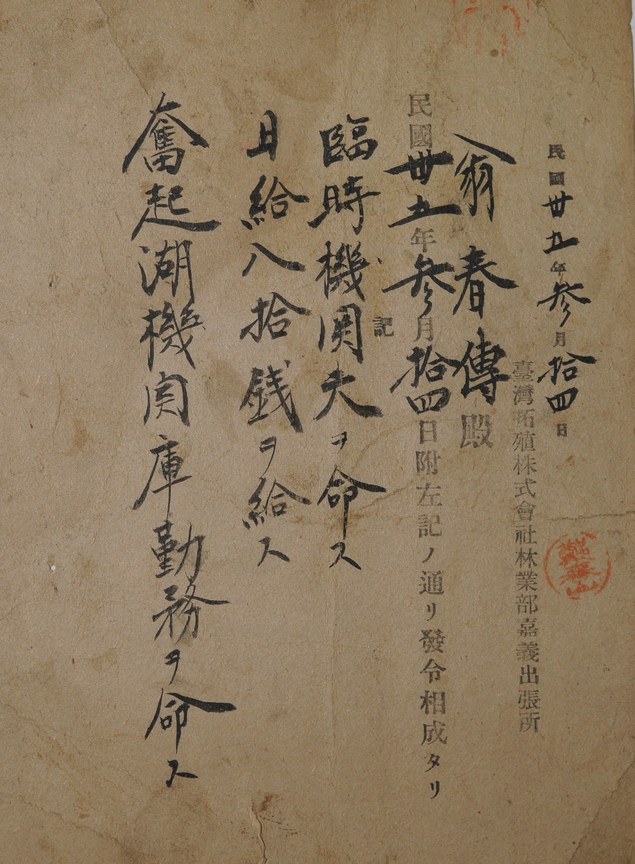 民國卅五年參月拾四日
臺灣拓殖株式會社林業部嘉義出張所
翁春傳殿
民國卅五年參月拾四日附左記ノ通リ發令相成タリ
記
臨時機関夫ヲ命ス
日給八拾銭ヲ給ス
奮起湖機関庫勤務ヲ命ス